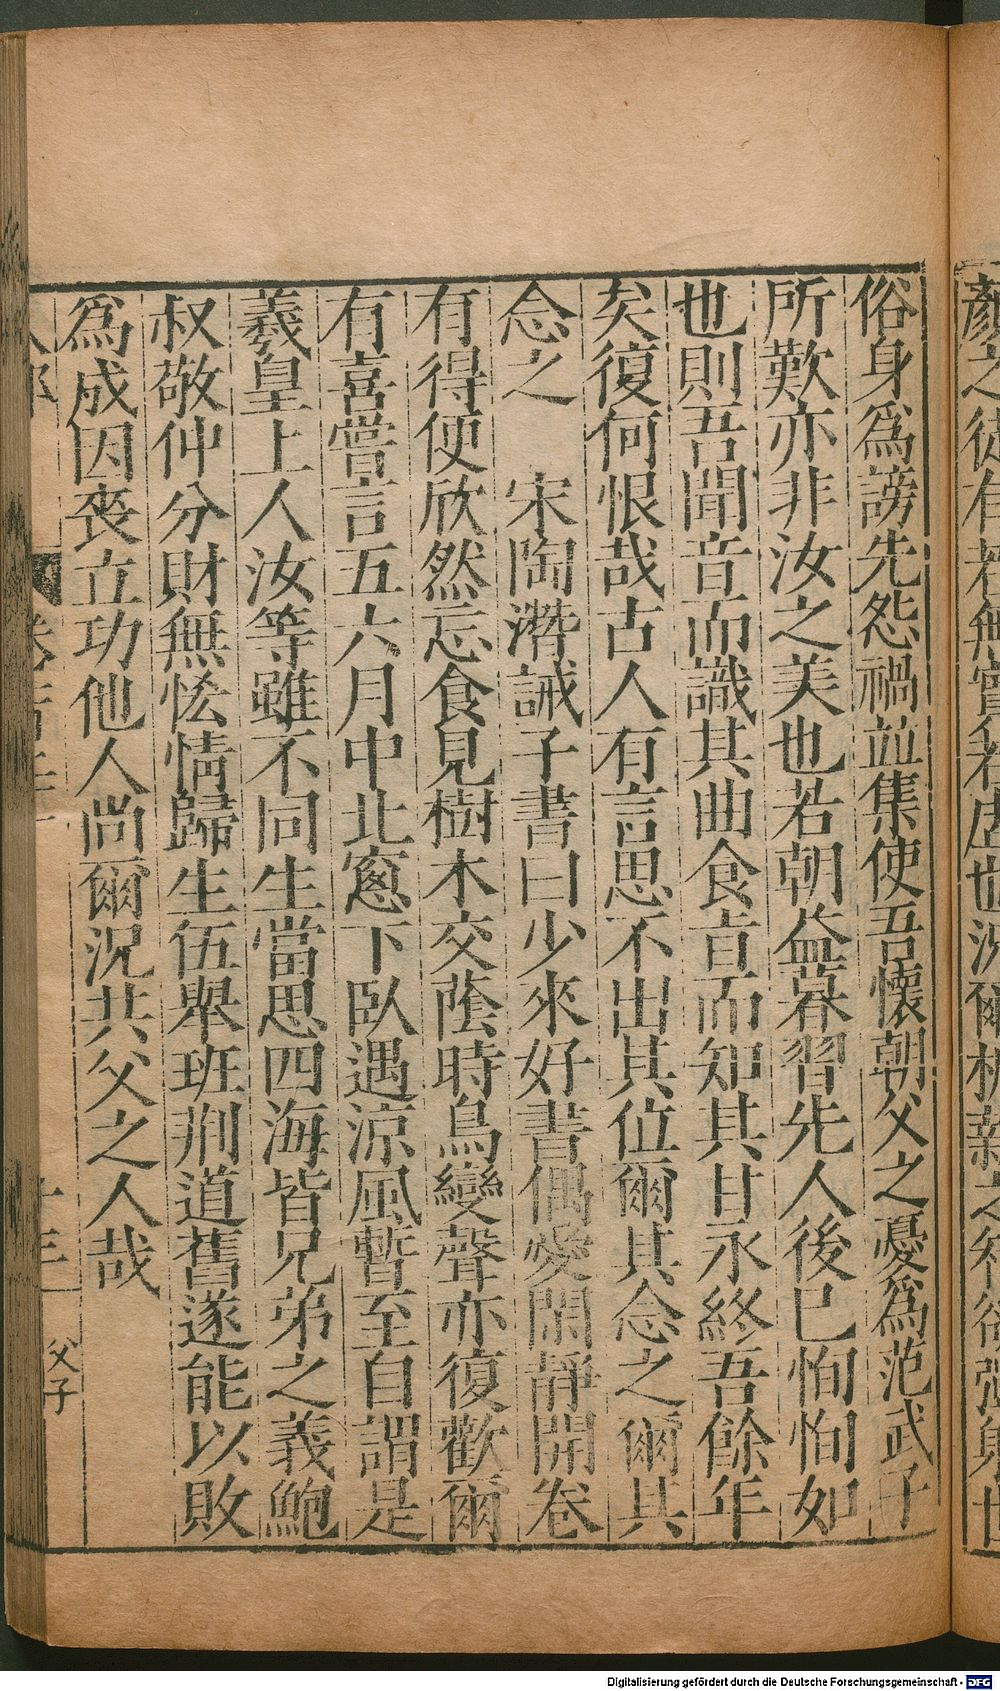 俗身爲謗先怨禍並集使吾懷朝父之憂爲范武子
所歎亦非汝之美也若朝益暮習先人後已恂恂如
也則吾聞音而識其曲食旨而知其甘永終吾餘年
矣復何恨哉古人有言思不出其位爾其念之爾其
念之　宋陶潛誡子書曰少來好書偶愛閑靜開卷
有得便欣然忘食見樹木交蔭時鳥變聲亦復歡爾
有喜嘗言五六月中北窻下臥遇涼風暫至自謂是
羲皇上人汝等雖不同生當思四海皆兄弟之義鮑
叔敬仲分財無恡情歸生伍舉班荆道舊遂能以敗
爲成因喪立功他人尚爾況共父之人哉
父子
Digitalisierung gefördert durch die Deutsche Forschungsgemeinschaft - DFG